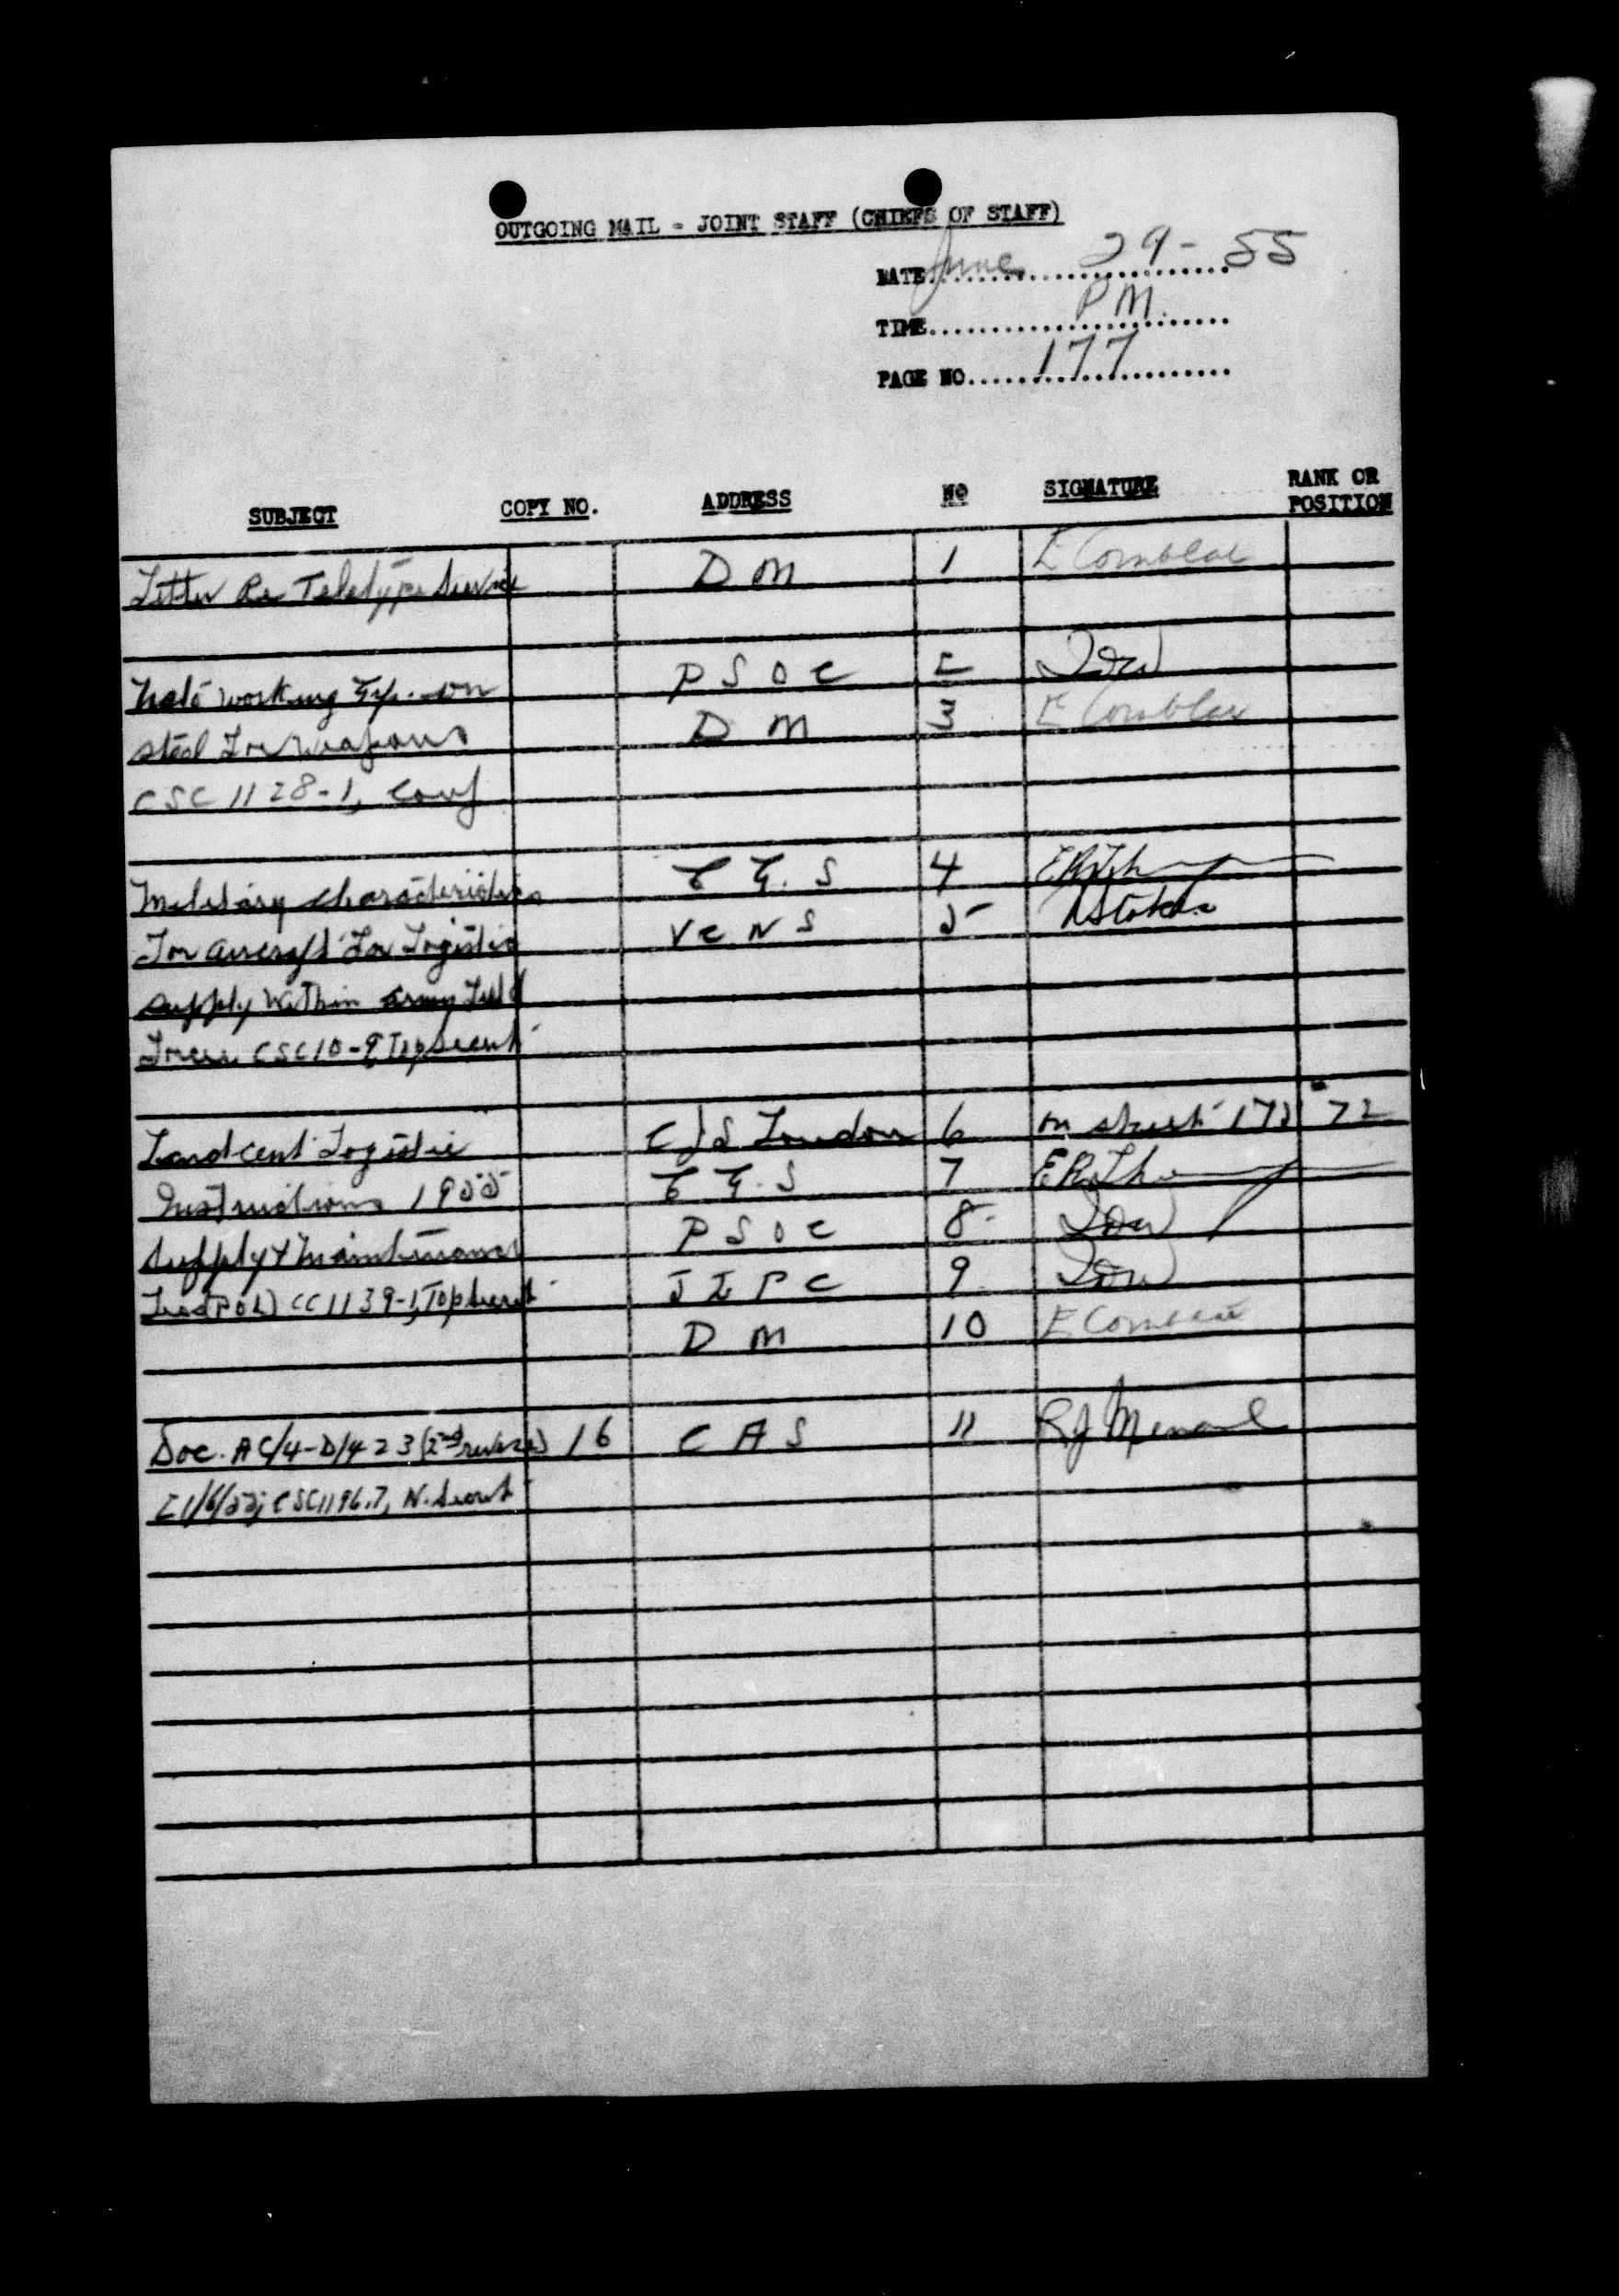 OUTGOING MAIL - JOINT STAFF (CHIEFS OF STAFF)
DATE June 29-55
TIME PM.
PAGE NO 177
SUBJECT COPY NO. ADDRESS NO SIGNATURE RANK OR POSITION
Letter Re Teletype Service D M 1
Nato working Gp. on P S O C 2
Steel For Weapons D M 3
CSC 1128-1, Conf
Military characteristics C G. S 4
For aircraft For Logistic V C N S 5 Stokes
supply Within army Field
Forces CSC10-9, Top Secret
Landcent Logistic C J S London 6 on sheet 172
Instructions 1955 C G. S 7
Supply & Maintenance P S O C 8
(POL) CC1139-1, Top Secret J I P C 9
D M 10
Doc. AC/4-D/423 (2nd revise) 16 C A S 11 RJ Menard
CSC1196.7, N. Secret